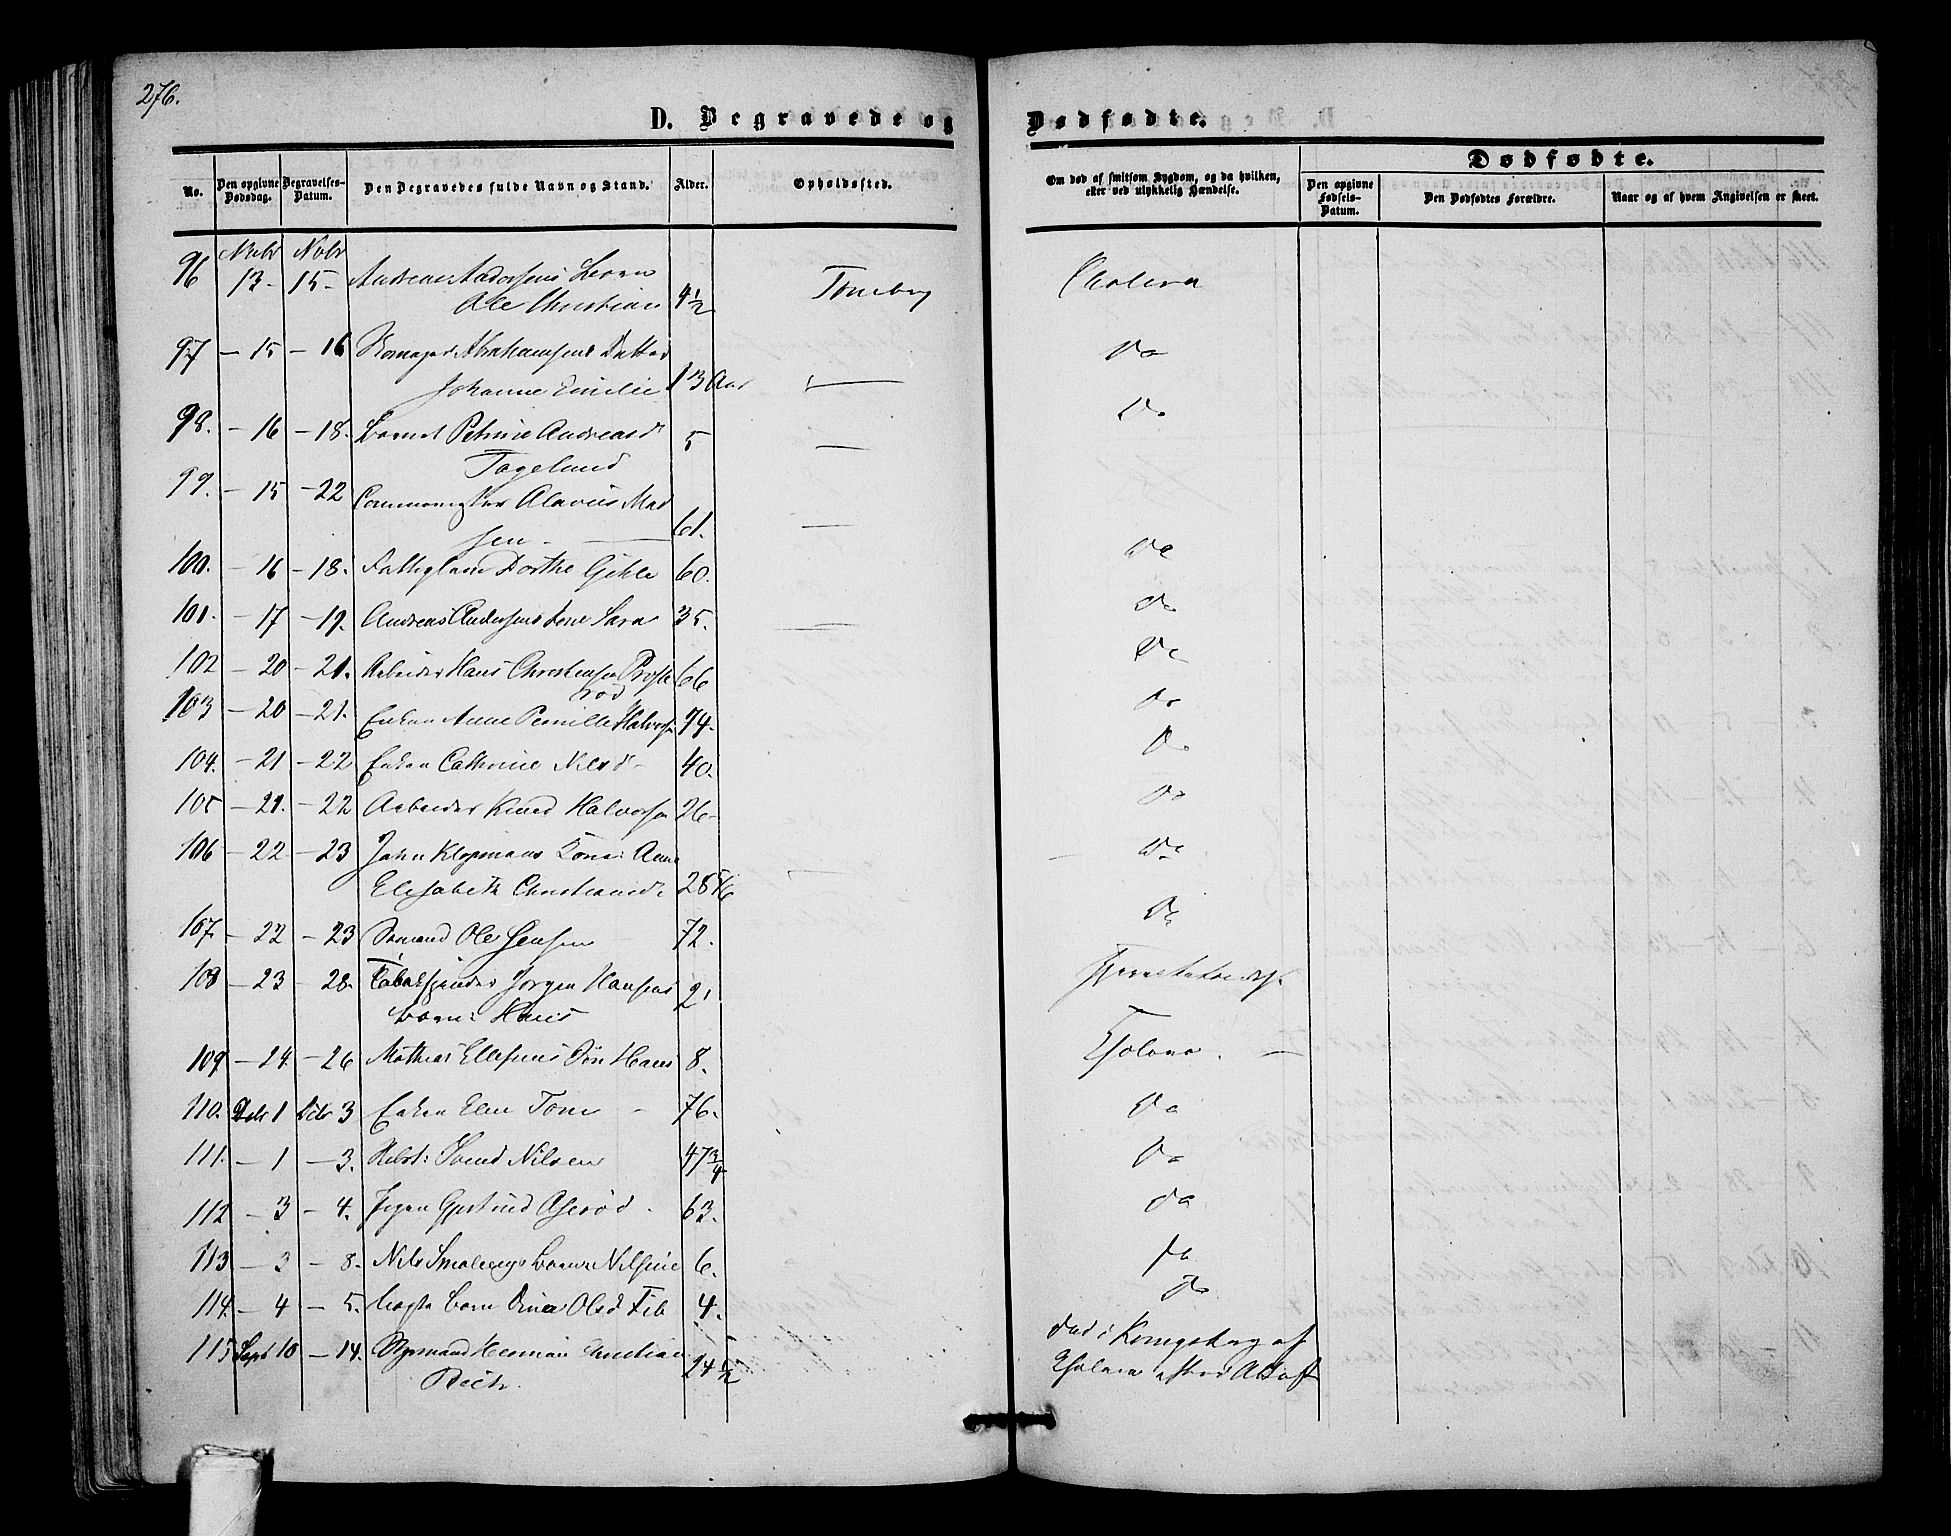 276.
D. Begravede og Dødfødte.
No.
Den opgivne Dødsdag.
Begravelses-Datum.
Den Begravedes fulde Navn og Stand.
Alder.
Opholdssted.
Om død af smitsom Sygdom, og da hvilken, eller ved ulykkelig Hændelse.
Dødfødte.
Den opgivne Fødsels-Datum.
Den Dødfødtes Forældre.
Naar og af hvem Angivelsen er skeet.
96 Novbr 13- Novbr 15- Andreas Andersens Barn
Ole Christian 4 1/2 Tønsberg Cholera
97 - 15 - 16 Abrahamsens Datter
Johanne Emilie 13 Aar — Do
98. - 16 - 18. Barnet Petrine Andreasd
5 — Do
99. - 15 - 22 Alavius Mad
sen - 61. —
Do
100. - 16 - 18. Fattiglem Dorthe 60.
Do
101. - 17 - 19. Andreas Andersens Kone Sara 35. —
Do
102 - 20 - 21. Arbeider Hans Christensen 66
rød
Do
103 - 20 - 21. Enken Anne Pernille Halvors 74.
Do
104. - 21 - 22 Enken Cathrine Nilsd - 40.
Do
105 - 21. - 22 Arbeider Knud Halvorsen 26-
Do
106 - 22 - 23 John Klopmans Kone: Anne
Elisabeth Christiansd. 28 —
Do
107. - 22 - 23 Sømand Ole Jensen 72.
108 - 23 - 28. Tobakspinder Jørgen Hansens
Barn: Hans 2
109 - 24. - 26 Mathias Ellefsens Søn Hans 8. Cholera. —
110. Debr 1 Debr 3 Enken Elen Tom - 76. Do
111. - 1 - 3. Svend Nilsen 47 3/4 Do
112 - 3 - 4. Pigen Gjertrud Aserød. 63. Do
113 - 3 - 8. Nils Barn Nilsine 6. Do
114. - 4 - 5. Barn Olsd 4. Do
115 Sept 10 - 14. Herman Christian
24 1/2
død i Kongsberg af
Cholera